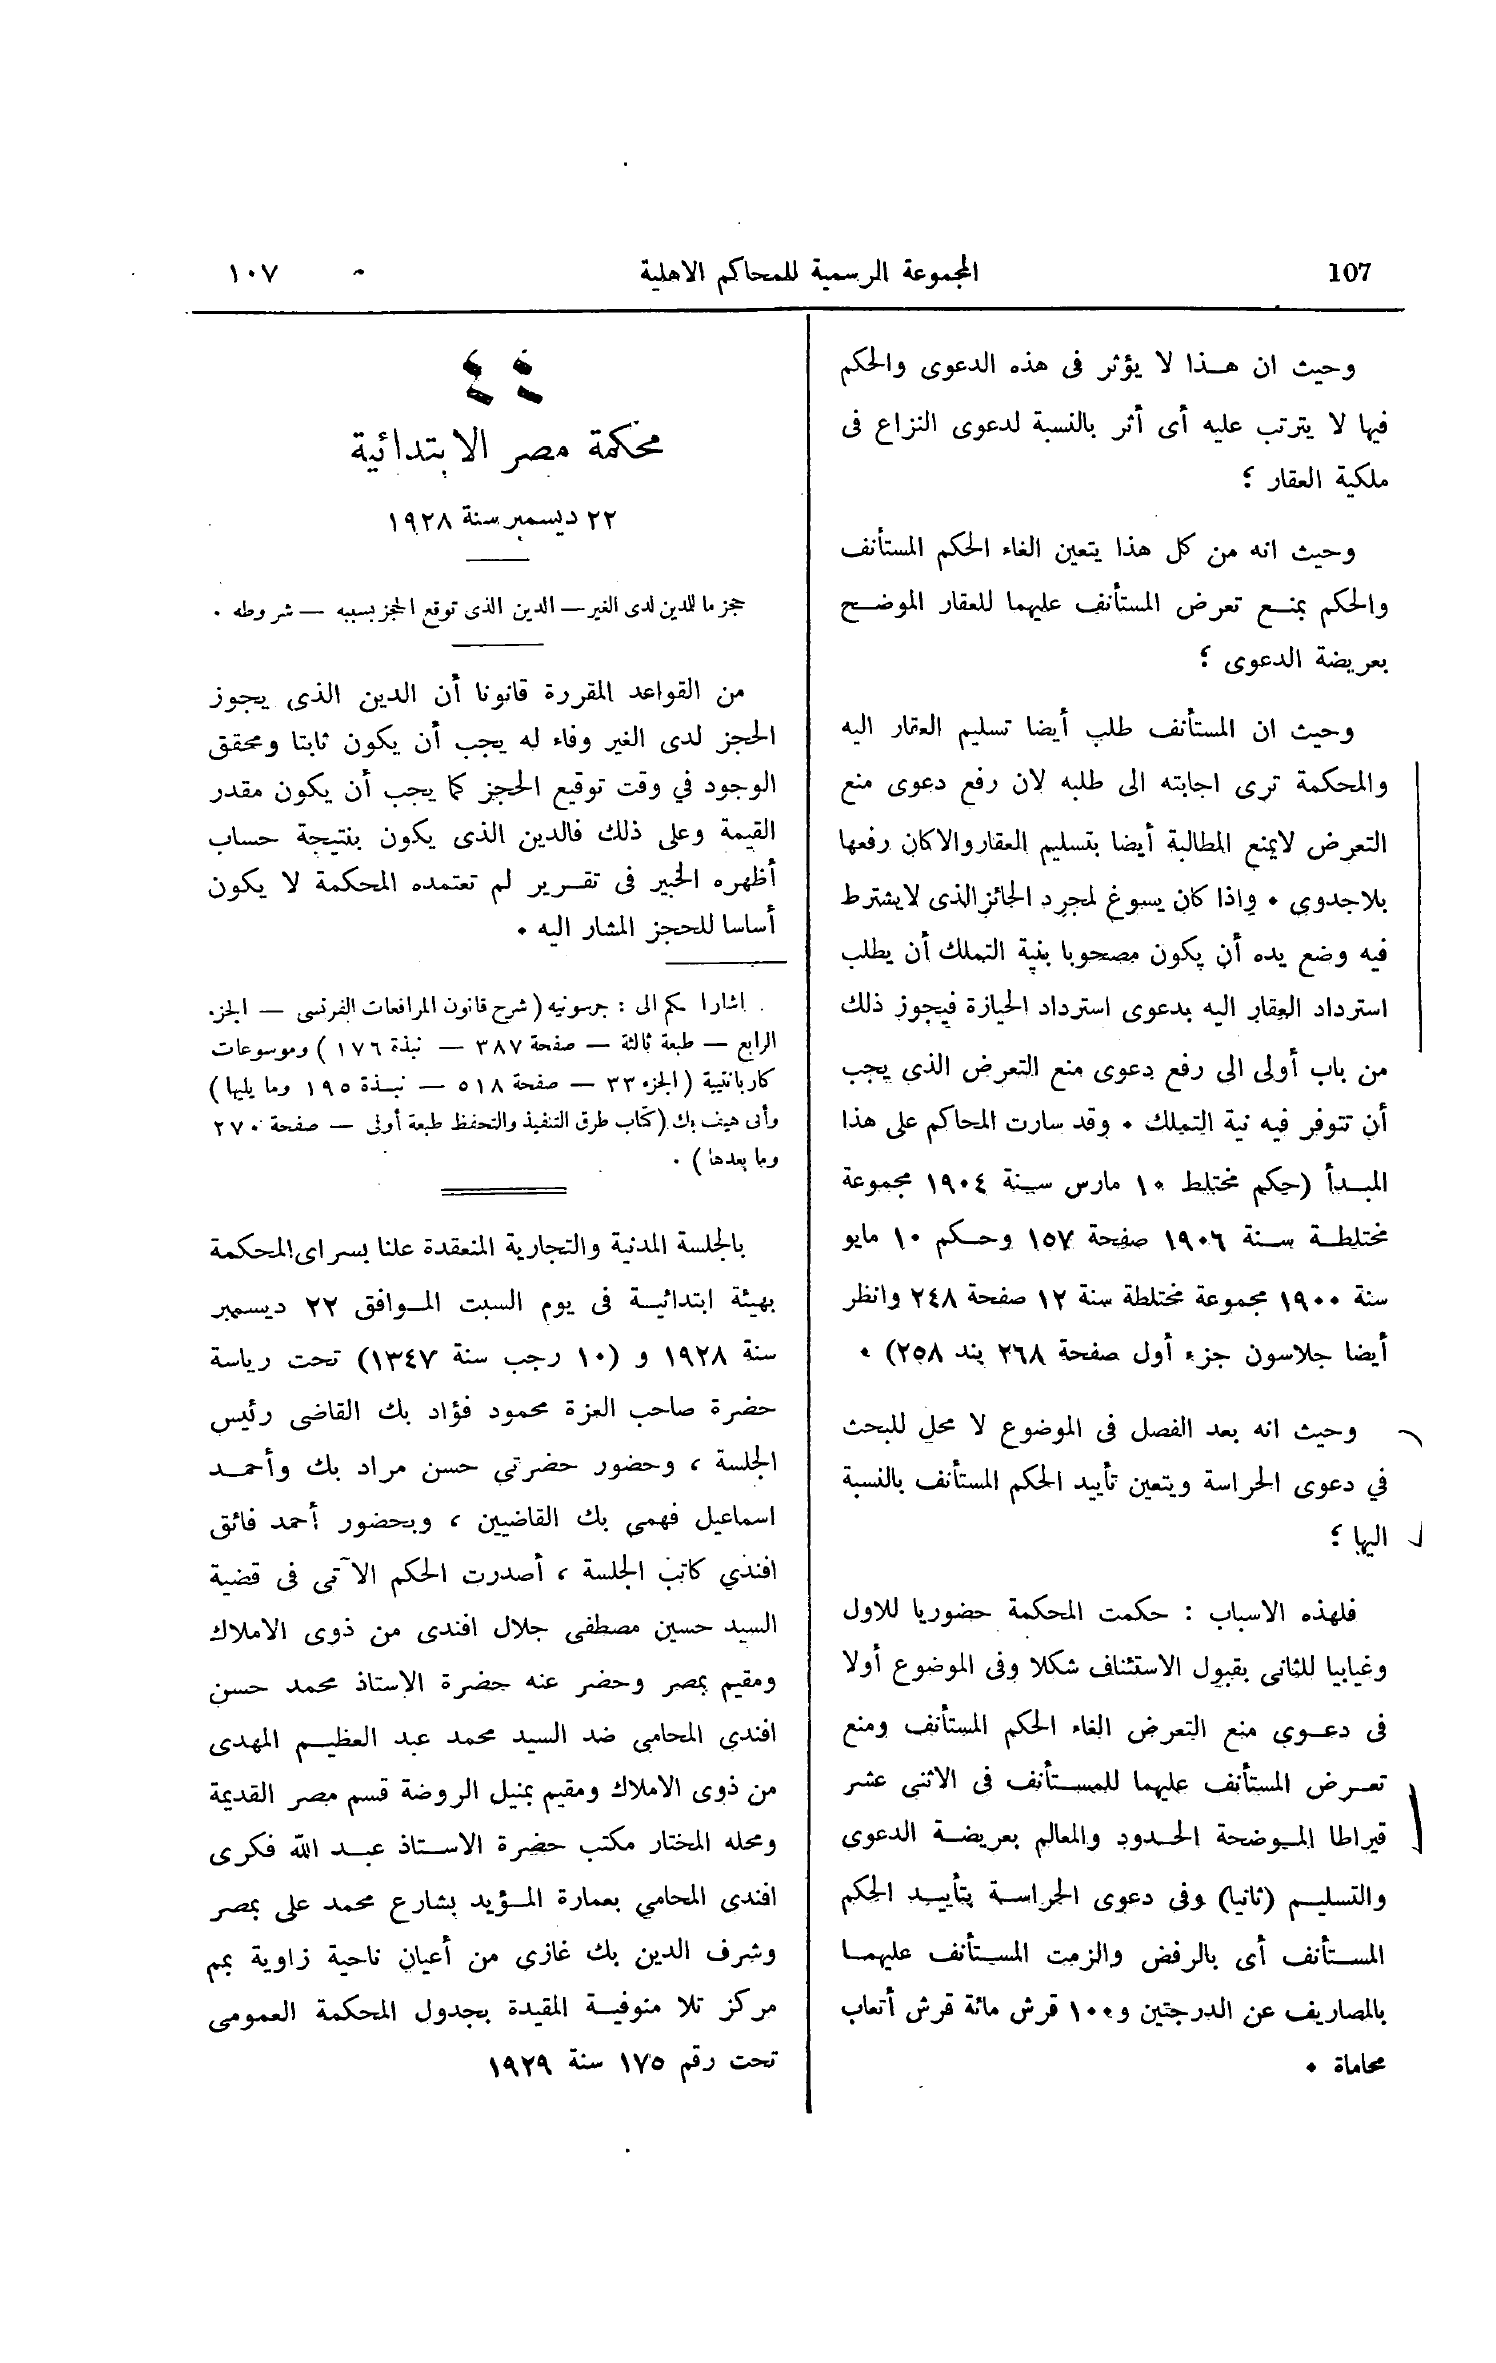 107 المجموعة الرسمية للمحاكم الاهلية ١٠٧
وحيث ان هذا لا يؤثر فى هذه الدعوى والحكم
فيها لا يترتب عليه أى أثر بالنسبة لدعوى النزاع فى
ملكية العقار ؛
وحيث انه من كل هذا يتعين الغاء الحكم المستأنف
والحكم بمنع تعرض المستأنف عليهما للعقار الموضح
بعريضة الدعوى ؛
وحيث ان المستأنف طلب أيضا تسليم العقار اليه
والمحكمة ترى اجابته الى طلبه لان رفع دعوى منع
التعرض لايمنع المطالبة أيضا بتسليم العقار والا كان رفعها
بلاجدوى . واذا كان يسوغ لمجرد الحائز الذى لايشترط
فيه وضع يده أن يكون مصحوبا بنية التملك أن يطلب
استرداد العقار اليه بدعوى استرداد الحيازة فيجوز ذلك
من باب أولى الى رفع دعوى منع التعرض الذى يجب
أن تتوفر فيه نية التملك . وقد سارت المحاكم على هذا
المبدأ (حكم مختلط ١٠ مارس سنة ١٩٠٤ مجموعة
مختلطة سنة ١٩٠٦ صفحة ١٥٧ وحكم ١٠ مايو
سنة ١٩٠٠ مجموعة مختلطة سنة ١٢ صفحة ٢٤٨ وانظر
أيضا جلاسون جزء أول صفحة ٢٦٨ بند ٢٥٨) .
وحيث انه بعد الفصل فى الموضوع لا محل للبحث
في دعوى الحراسة ويتعين تأييد الحكم المستأنف بالنسبة
اليها ؛
فلهذه الاسباب : حكمت المحكمة حضوريا للاول
وغيابيا للثانى بقبول الاستئناف شكلا وفى الموضوع أولا
فى دعوى منع التعرض الغاء الحكم المستأنف ومنع
تعرض المستأنف عليهما للمستأنف فى الاثنى عشر
قيراطا الموضحة الحدود والمعالم بعريضة الدعوى
والتسليم (ثانيا) وفى دعوى الحراسة بتأييد الحكم
المستأنف أى بالرفض والزمت المستأنف عليهما
بالمصاريف عن الدرجتين و١٠٠ قرش مائة قرش أتعاب
محاماة .
٤٤
محكمة مصر الابتدائية
٢٢ ديسمبر سنة ١٩٢٨
حجز ما للدين لدى الغير — الدين الذى توقع الحجز بسببه — شروطه .
من القواعد المقررة قانونا أن الدين الذى يجوز
الحجز لدى الغير وفاء له يجب أن يكون ثابتا ومحقق
الوجود في وقت توقيع الحجز كما يجب أن يكون مقدر
القيمة وعلى ذلك فالدين الذى يكون بنتيجة حساب
أظهره الخبير فى تقرير لم تعتمده المحكمة لا يكون
أساسا للحجز المشار اليه .
الى : جرسونيه (شرح قانون المرافعات الفرنسى — الجزء
الرابع — طبعة ثالثة — صفحة ٣٨٧ — نبذة ١٧٦) وموسوعات
كاربانتييه (الجزء ٣٣ — صفحة ٥١٨ — نبذة ١٩٥ وما يليها)
وأبى هيف بك (كتاب طرق التنفيذ والتحفظ طبعة أولى — صفحة ٢٧٠
وما بعدها) .
بالجلسة المدنية والتجارية المنعقدة علنا بسراى المحكمة
بهيئة ابتدائية فى يوم السبت الموافق ٢٢ ديسمبر
سنة ١٩٢٨ و (١٠ رجب سنة ١٣٤٧) تحت رياسة
حضرة صاحب العزة محمود فؤاد بك القاضى رئيس
الجلسة ، وحضور حضرتي حسن مراد بك وأحمد
اسماعيل فهمى بك القاضيين ، وبحضور أحمد فائق
افندي كاتب الجلسة ، أصدرت الحكم الآتى فى قضية
السيد حسين مصطفى جلال افندى من ذوى الاملاك
ومقيم بمصر وحضر عنه حضرة الاستاذ محمد حسن
افندى المحامى ضد السيد محمد عبد العظيم المهدى
من ذوى الاملاك ومقيم بمنيل الروضة قسم مصر القديمة
ومحله المختار مكتب حضرة الاستاذ عبد الله فكرى
افندى المحامي بعمارة المؤيد بشارع محمد على بمصر
وشرف الدين بك غازى من أعيان ناحية زاوية بمم
مركز تلا منوفية المقيدة بجدول المحكمة العمومى
تحت رقم ١٧٥ سنة ١٩٢٩